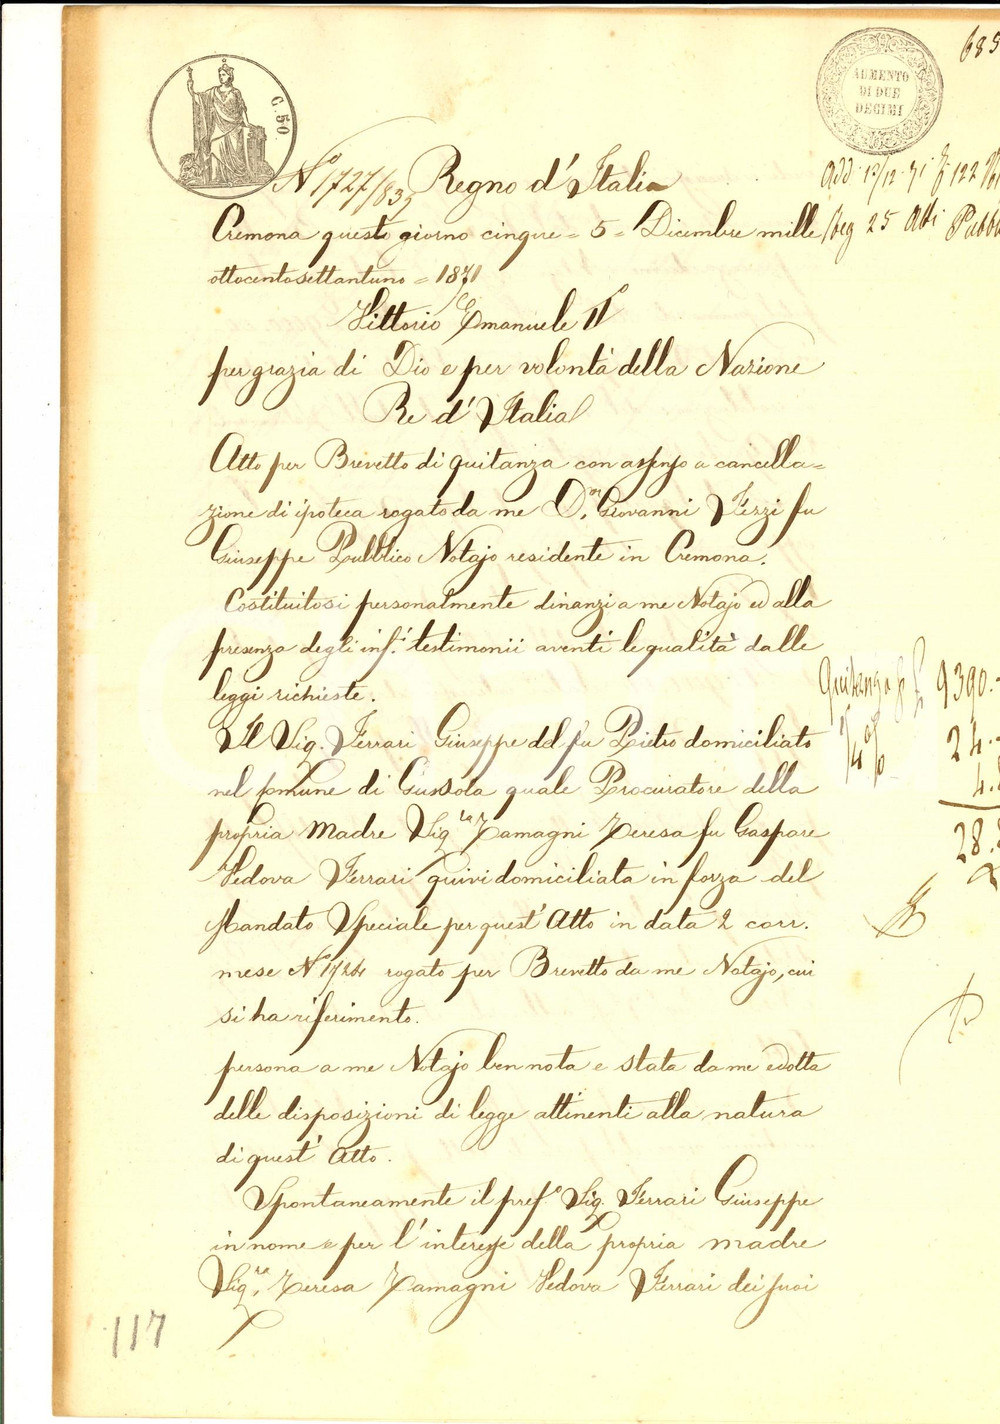 C. 50.
AUMENTO
DI DUE
DECIMI
685
N° 1727/832 Regno d'Italia
Add. 12/12 71 f 122
Cremona questo giorno cinque = 5 = Dicembre mille
Reg 25 Atti Pubbl
ottocentosettantuno = 1871
Vittorio Emanuele II°
per grazia di Dio e per volontà della Nazione
Re d'Italia
Atto per Brevetto di quitanza con assenso a cancella=
zione di ipoteca rogato da me D.or Giovanni Fezzi fu
Giuseppe Pubblico Notajo residente in Cremona.
Costituitosi personalmente dinanzi a me Notajo ed alla
presenza degli inf.i testimonii aventi le qualità dalle
leggi richieste.
Quitanza 9390.-
Il Sig. Ferrari Giuseppe del fu Pietro domiciliato
24.-
nel comune di Gussola quale Procuratore della
4.8
propria madre Sig.ra Tamagni Teresa fu Gaspare
28.8
Vedova Ferrari quivi domiciliata in forza del
Mandato Speciale per quest' Atto in data 2 corr.
mese N° 1724 rogato per Brevetto da me Notajo, cui
si ha riferimento.
persona a me Notajo ben nota e stata da me edotta
delle disposizioni di legge attinenti alla natura
di quest' Atto.
Spontaneamente il pref.o Sig. Ferrari Giuseppe
in nome e per l'interesse della propria madre
Sig.ra Teresa Tamagni Vedova Ferrari dei suoi
117